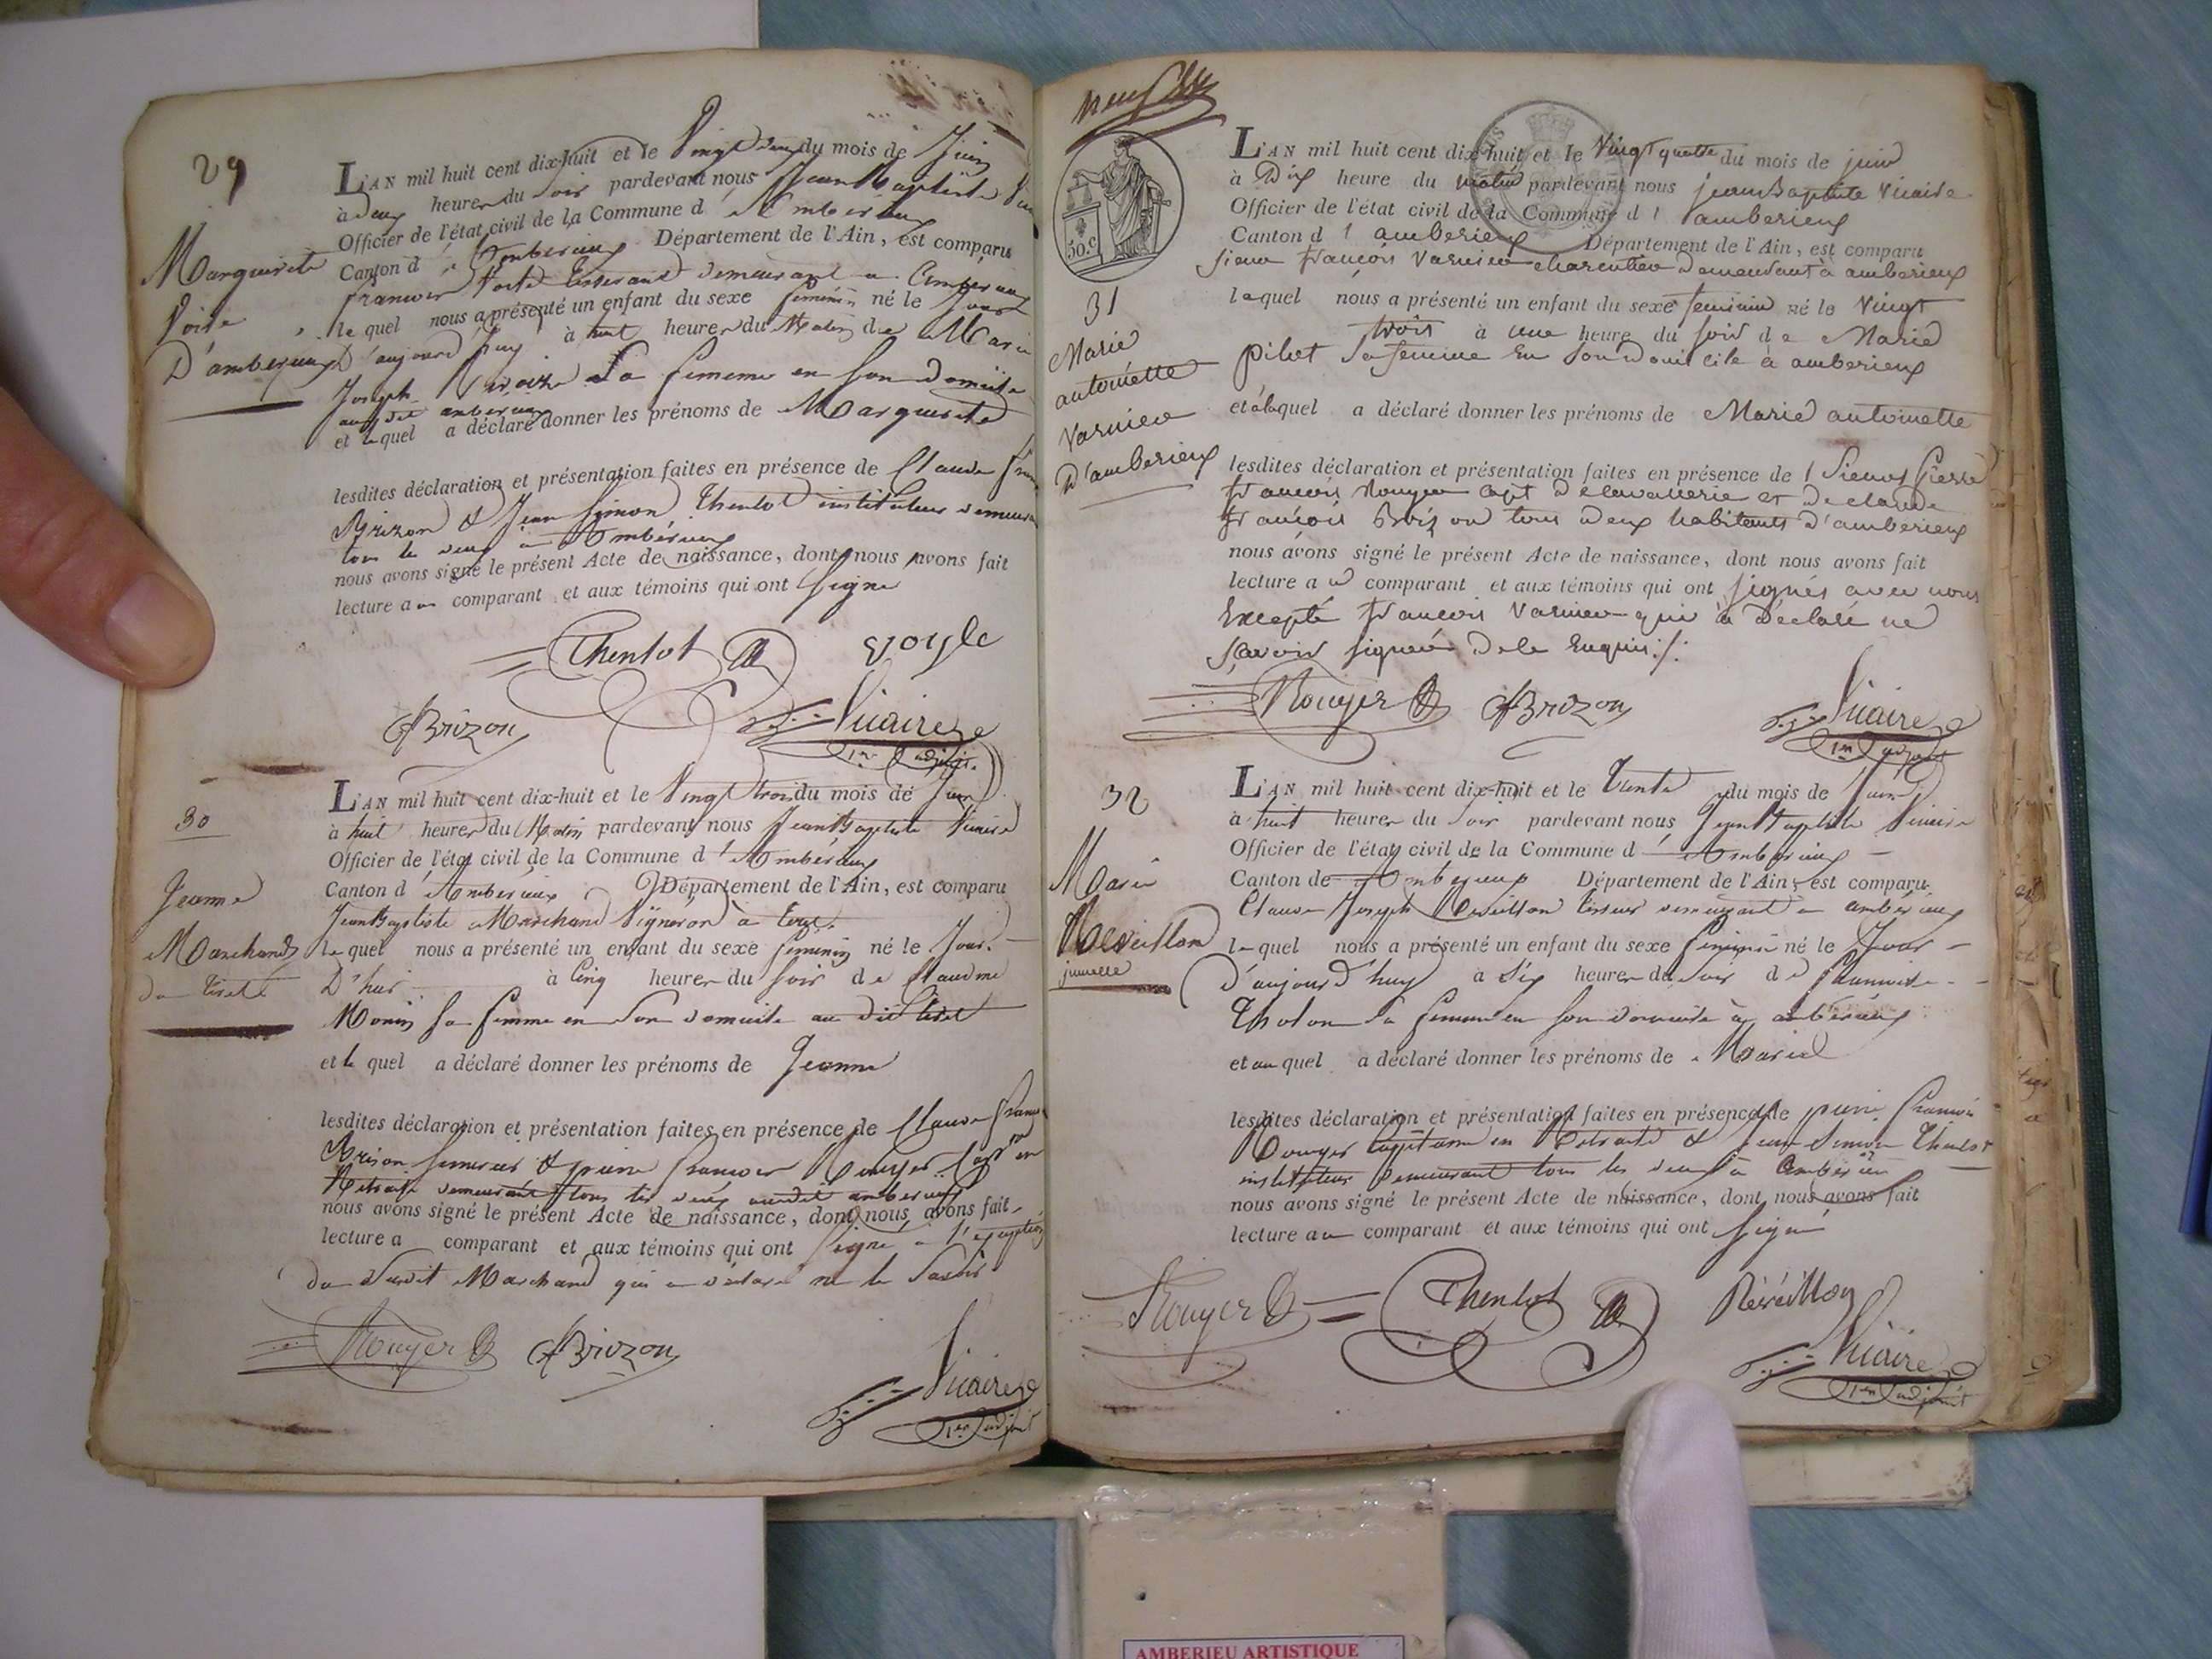 29
Marguerite
D'amberieux
L'AN mil huit cent dix-huit et le Vingt deux du mois de Juin
à deux heures du Soir pardevant nous Jean Baptiste
Officier de l'état civil de la Commune d' Amberieux
Canton d' Amberieux Département de l'Ain, est comparu
francois tisserand demeurant a amberieux
lequel nous a présenté un enfant du sexe feminin né le Jour
D'aujourd'huy à huit heures du Matin de Marie
Joseph sa femme en son domicile
audit amberieux
et lequel a déclaré donner les prénoms de Marguerite
lesdites déclaration et présentation faites en présence de Claude
Brizon & Jean Simon Thenlot instituteur
tous les deux a Amberieux
nous avons signé le présent Acte de naissance, dont nous avons fait
lecture au comparant et aux témoins qui ont signe
Thenlot
Brizon
Vicaire
1er adjoint
30
Jeanne
Marchand
L'AN mil huit cent dix-huit et le Vingt trois du mois de Juin
à huit heures du Matin pardevant nous Jean Baptiste Vicaire
Officier de l'état civil de la Commune d' Amberieux
Canton d' Amberieux Département de l'Ain, est comparu
Jean Baptiste Marchand Vigneron à
lequel nous a présenté un enfant du sexe feminin né le Jour
D'hier à Cinq heures du soir de Claudine
Monin sa femme en son domicile au dit
et le quel a déclaré donner les prénoms de Jeanne
lesdites déclaration et présentation faites en présence de Claude
Brison & pierre francois Rouyer
Retraite demeurant tous les deux audit amberieux
nous avons signé le présent Acte de naissance, dont nous avons fait
lecture a comparant et aux témoins qui ont signé a l'exception
du Susdit Marchand qui a déclaré ne le Savoir
Rouyer
Brizon
Vicaire
1er adjoint
50.c
31
Marie
antoinette
Varnier
d'amberieux
L'AN mil huit cent dix-huit et le Vingt quatre du mois de juin
à Dix heure du matin pardevant nous jean Baptiste Vicaire
Officier de l'état civil de la Commune d' amberieux
Canton d' amberieux Département de l'Ain, est comparu
sieur françois Varnier charpentier Demeurant à amberieux
lequel nous a présenté un enfant du sexe feminin né le Vingt
trois à une heure du soir de Marie
pilut sa femme en son domicile à amberieux
et a déclaré donner les prénoms de Marie antoinette
lesdites déclaration et présentation faites en présence de Sieurs Pierre
françois Rouyer capt De cavallerie et De claude
françois Brizon tous deux habitants d'amberieux
nous avons signé le présent Acte de naissance, dont nous avons fait
lecture au comparant et aux témoins qui ont signés avec nous
Excepté françois Varnier qui à Déclaré ne
sçavoir signer De le Enquis
Rouyer
Brizon
Vicaire
1er adjoint
32
Marie
Reveillon
jumelle
L'AN mil huit cent dix-huit et le Trente du mois de Juin
à huit heures du Soir pardevant nous Jean Baptiste Vicaire
Officier de l'état civil de la Commune d' Amberieux
Canton de Amberieux Département de l'Ain, est comparu
Claude Joseph Reveillon tisseur demeurant a amberieux
lequel nous a présenté un enfant du sexe feminin né le Jour
d'aujourd'huy à Six heures du Soir de
Tholon sa femme en son domicile à amberieux
et au quel a déclaré donner les prénoms de Marie
lesdites déclaration et présentation faites en présence de pierre francois
Rouyer Capitaine en Retraite & jean Simon Thenlot
instituteur Demeurant tous les deux a Amberieu
nous avons signé le présent Acte de naissance, dont nous avons fait
lecture au comparant et aux témoins qui ont signé
Rouyer
Thenlot
Réveillon
Vicaire
1er adjoint
AMBERIEU ARTISTIQUE